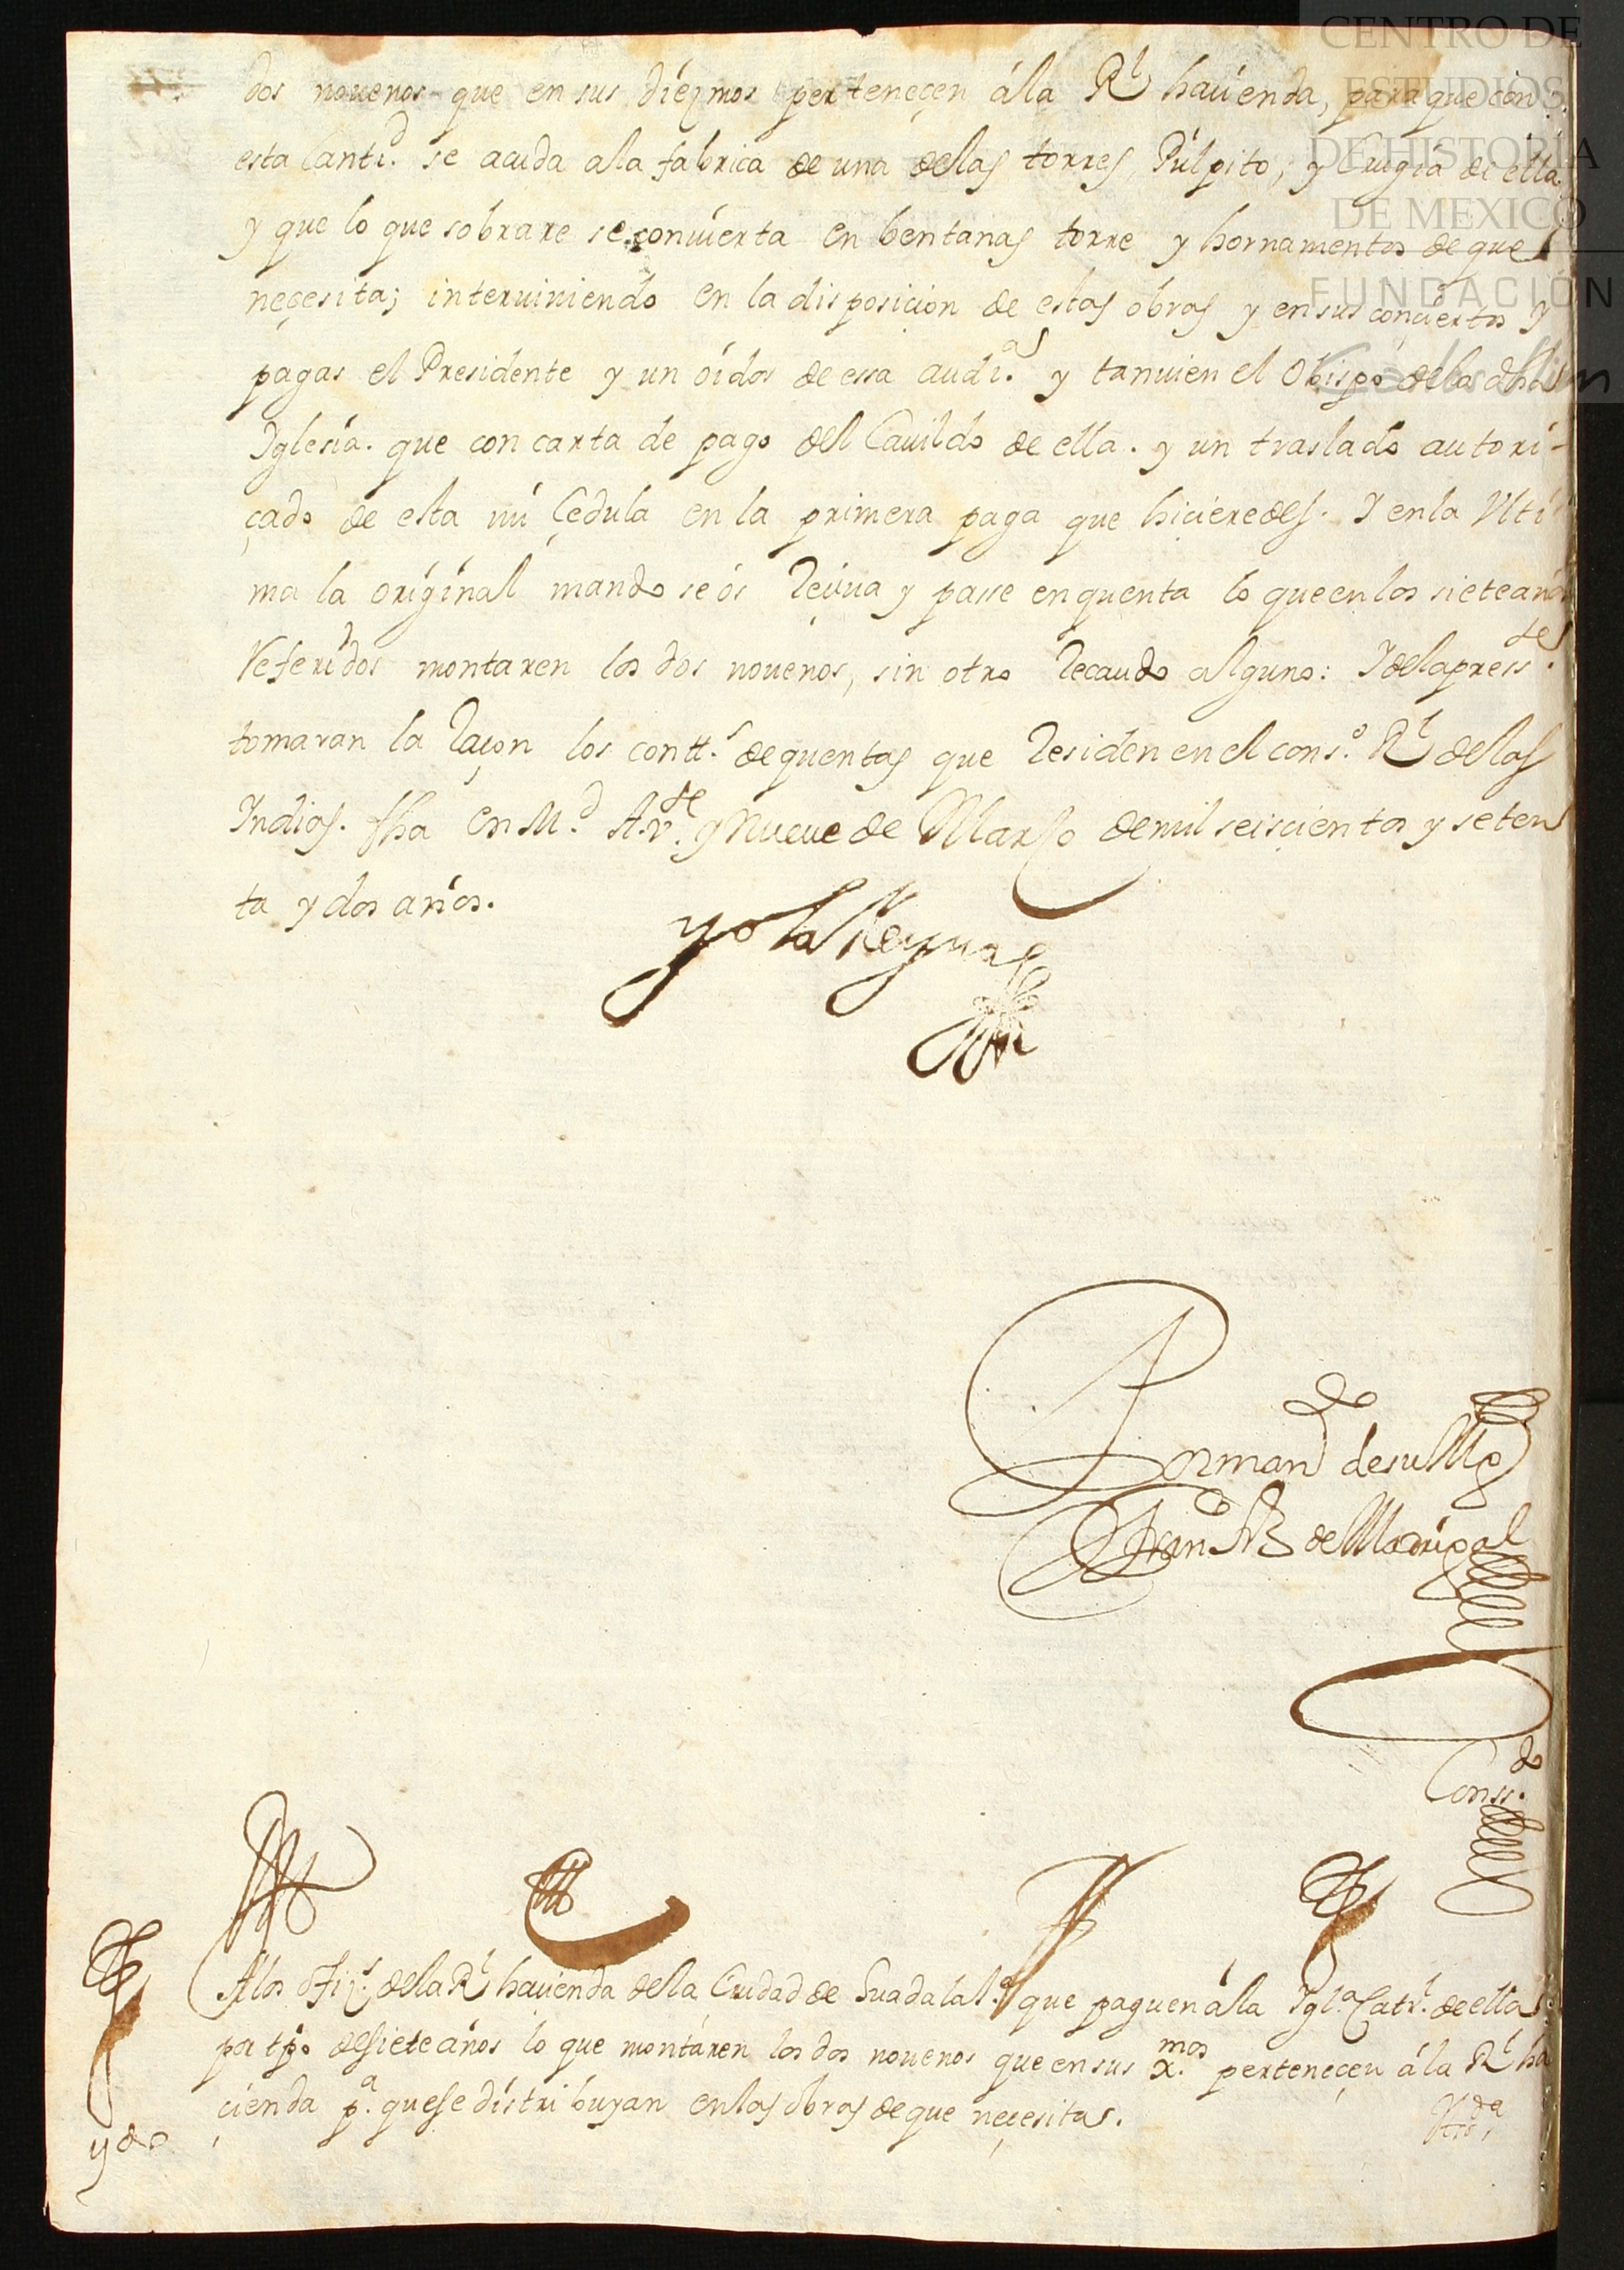 CENTRO DE
ESTUDIOS
DE HISTORIA
DE MEXICO
FUNDACIÓN
dos nouenos que en sus diezmos pertenecen á la Rl haçienda, para que con
esta Cantd. se acuda a la fabrica de una de las torres, Púlpito, y Crugia de ella
y que lo que sobrare se conuierta en bentanas torre y hornamentos de que
neçesita; interuiniendo en la disposiçion de estas obras y en sus conçiertos y
pagas el Presidente y un oidor de essa audia. y tanuien el Obispo de la dha
Iglesia. que con carta de pago del Cauildo de ella. y un traslado autori-
çado de esta mi Çedula en la primera paga que hiçieredes. Y en la Ulti
ma la original mando se ós reçiua y passe en quenta lo que en los siete años
referidos montaren los dos nouenos, sin otro recaudo alguno: Y de la presste.
tomaran la raçon los contts. de quentas que residen en el conso. Rl de las
Indias. fha en Md. A.vte. y Nueue de Março de mil seisçientos y seten
ta y dos años.
yo la Reyna
Por mando de su Mgd
Franco frz de Madrigal
Conssdo.
A los ofizs. de la Rl haçienda de la Ciudad de Guadalaxa. que paguen á la Igla. Catrl. de ella
por tpo de siete años lo que montáren los dos nouenos que en sus xmos. perteneçen á la Rl ha
çienda pa. que se distribuyan en las obras de que neçesita.